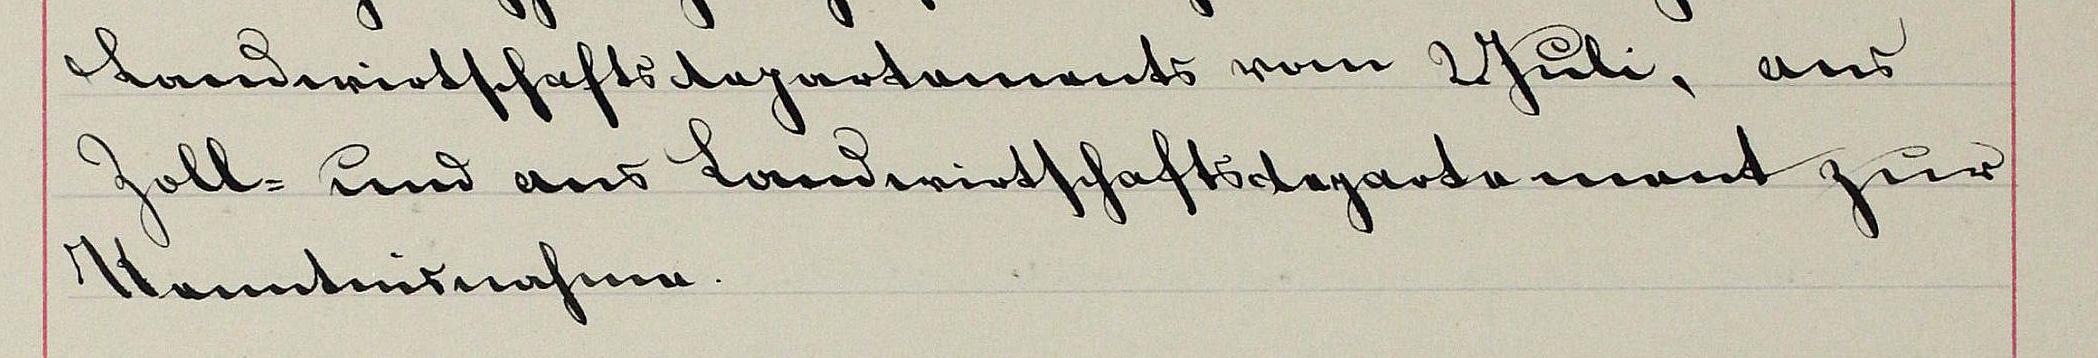 Landwirtschaftsdepartements vom 2 Juli, ans
Zoll- und ans Landwirtschaftsdepartement zur
Kenntnisnahme.